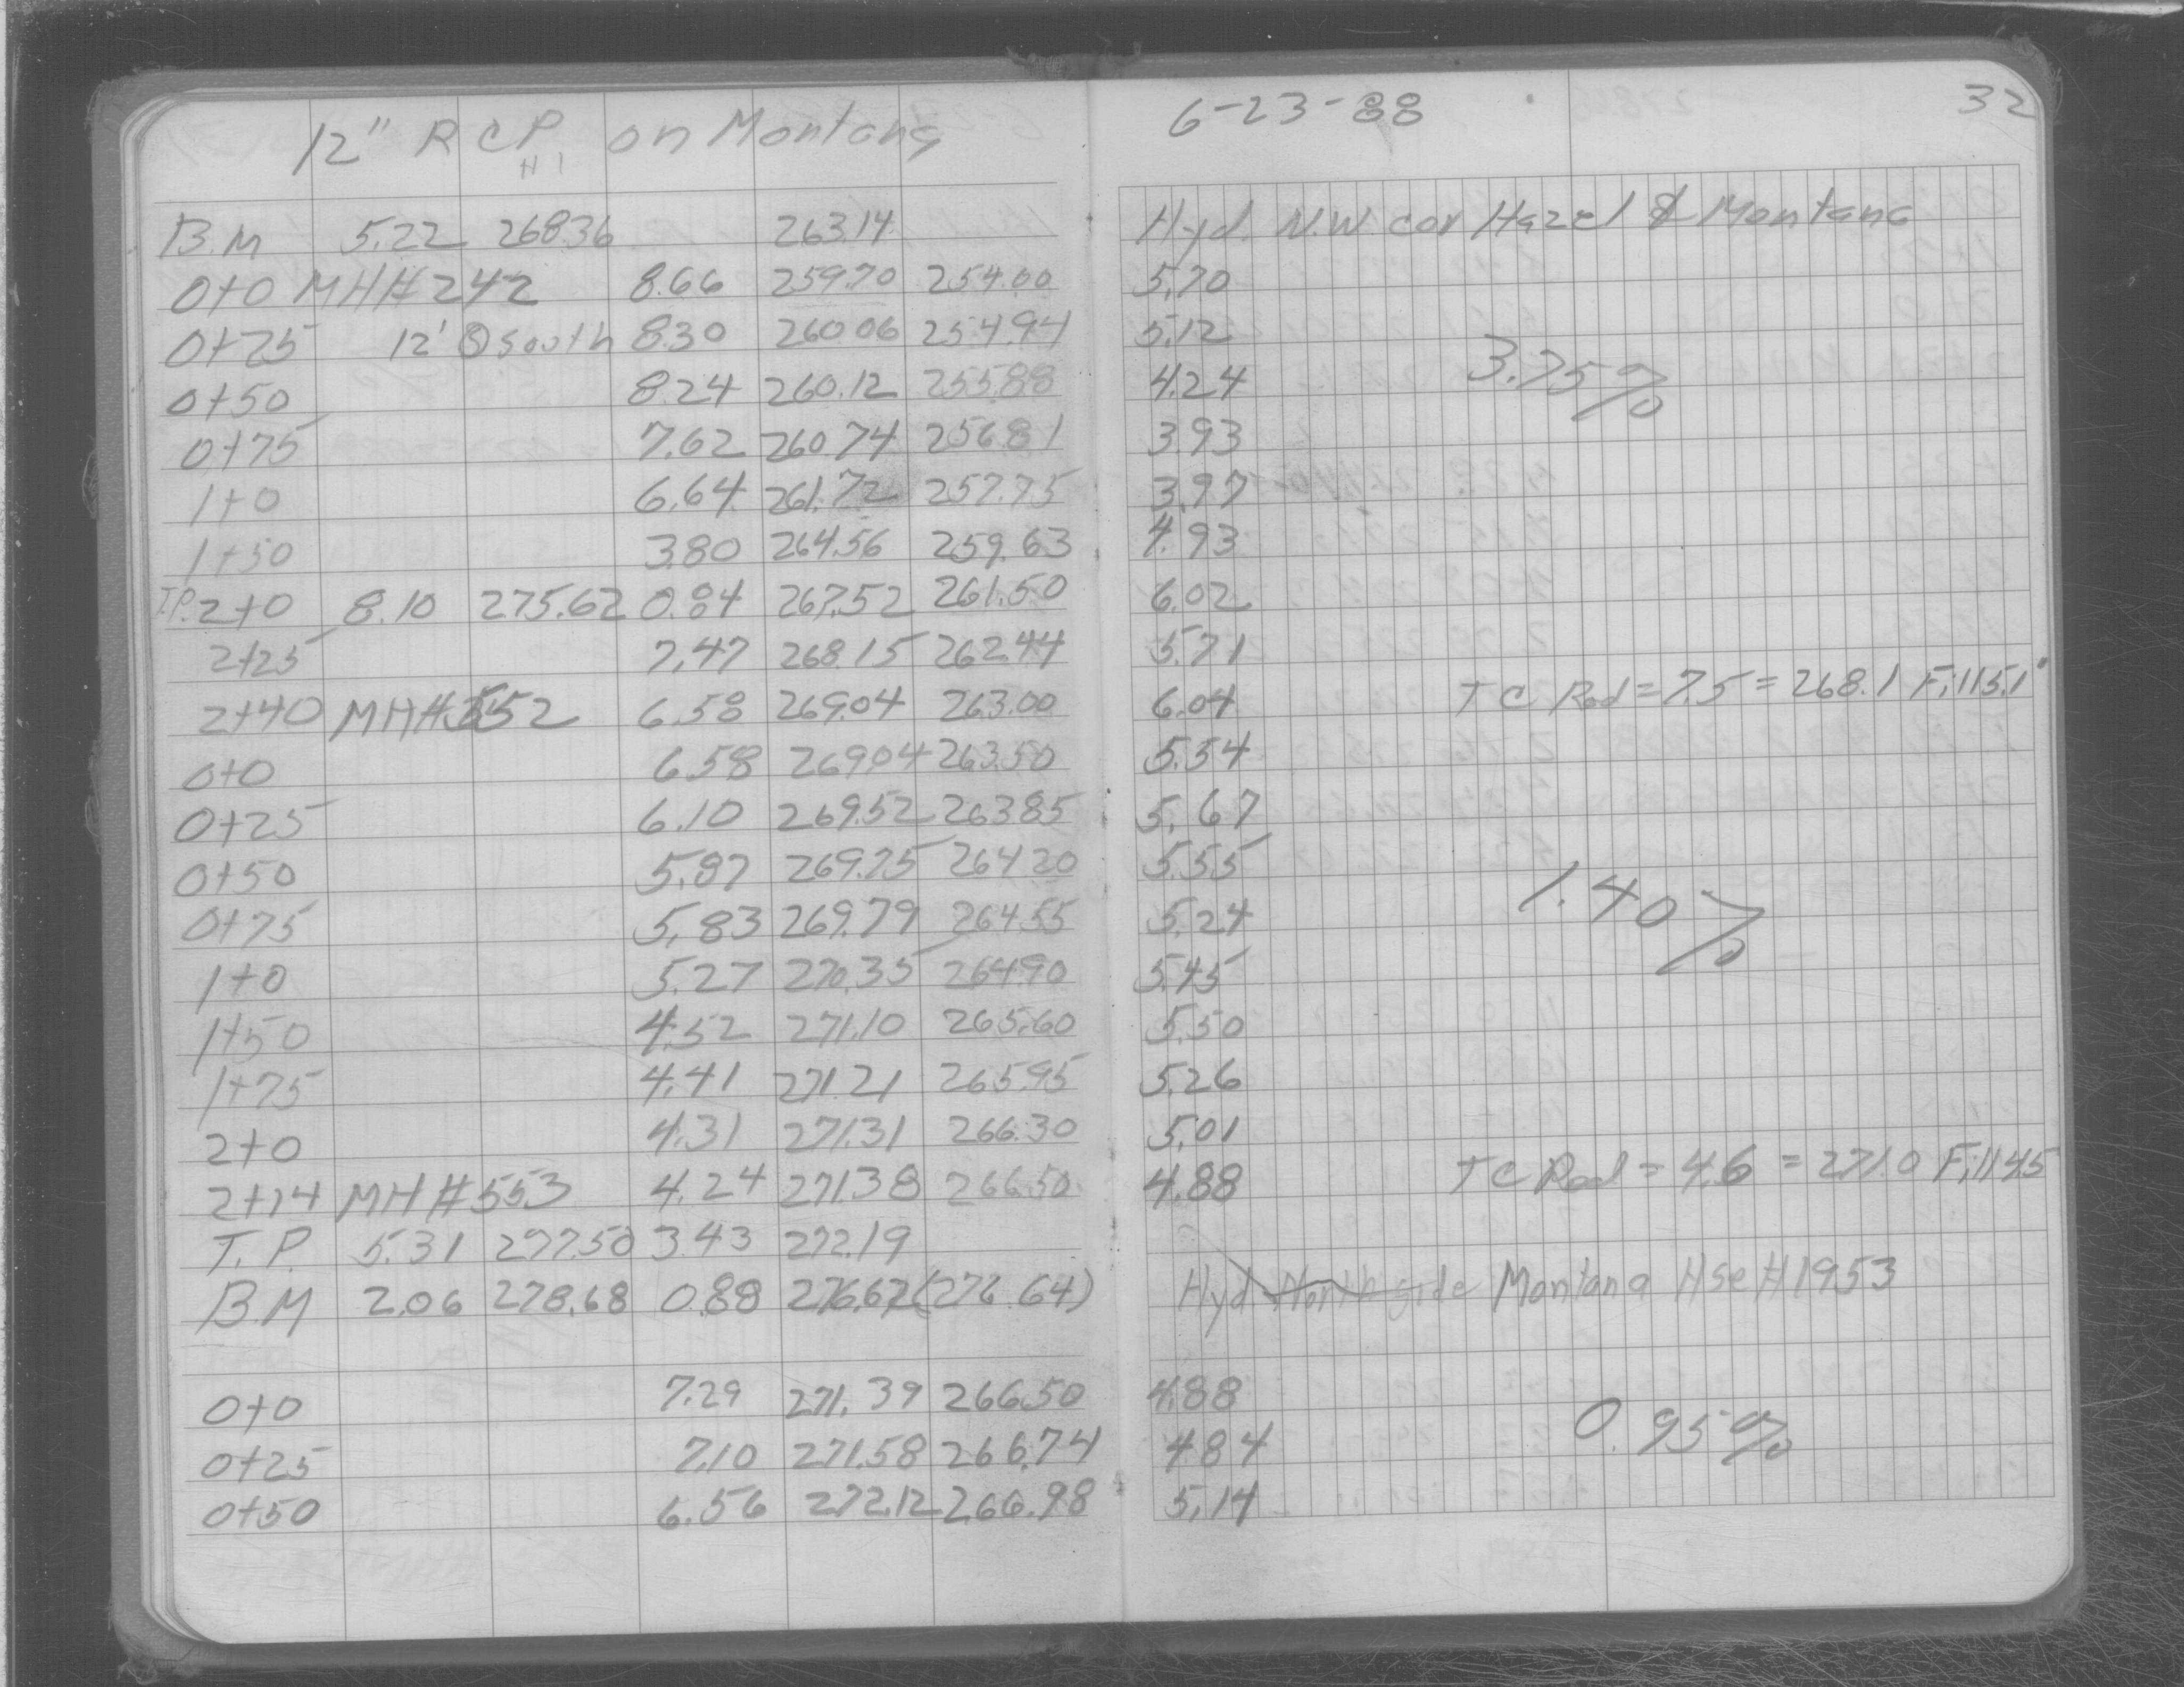 12" RCP on Montana 6-23-88 32
HI
B.M 5.22 268.36 263.14 Hyd. N.W cor Hazel & Montana
0+0 MH#242 8.66 259.70 254.00 5.70
0+25 12' South 8.30 260.06 254.94 5.12
3.75%
0+50 8.24 260.12 255.88 4.24
0+75 7.62 260.74 256.81 3.93
1+0 6.64 261.72 257.75 3.97
1+50 3.80 264.56 259.63 4.93
T.P. 2+0 8.10 275.62 0.84 267.52 261.50 6.02
2+25 7.47 268.15 262.44 5.71
2+40 MH#552 6.58 269.04 263.00 6.04 TC Rod = 7.5 = 268.1 Fill 5.1'
0+0 6.58 269.04 263.50 5.54
0+25 6.10 269.52 263.85 5.67
0+50 5.87 269.75 264.20 5.55
1.40%
0+75 5.83 269.79 264.55 5.24
1+0 5.27 270.35 264.90 5.45
1+50 4.52 271.10 265.60 5.50
1+75 4.41 271.21 265.95 5.26
2+0 4.31 271.31 266.30 5.01
2+14 MH#553 4.24 271.38 266.50 4.88 TC Rod = 4.6 = 271.0 Fill 4.5
T.P. 5.31 277.50 3.43 272.19
B.M 2.06 278.68 0.88 276.62 (276.64) Hyd North side Montana Hse #1953
0+0 7.29 271.39 266.50 4.88
0.95%
0+25 7.10 271.58 266.74 4.84
0+50 6.56 272.12 266.98 5.14